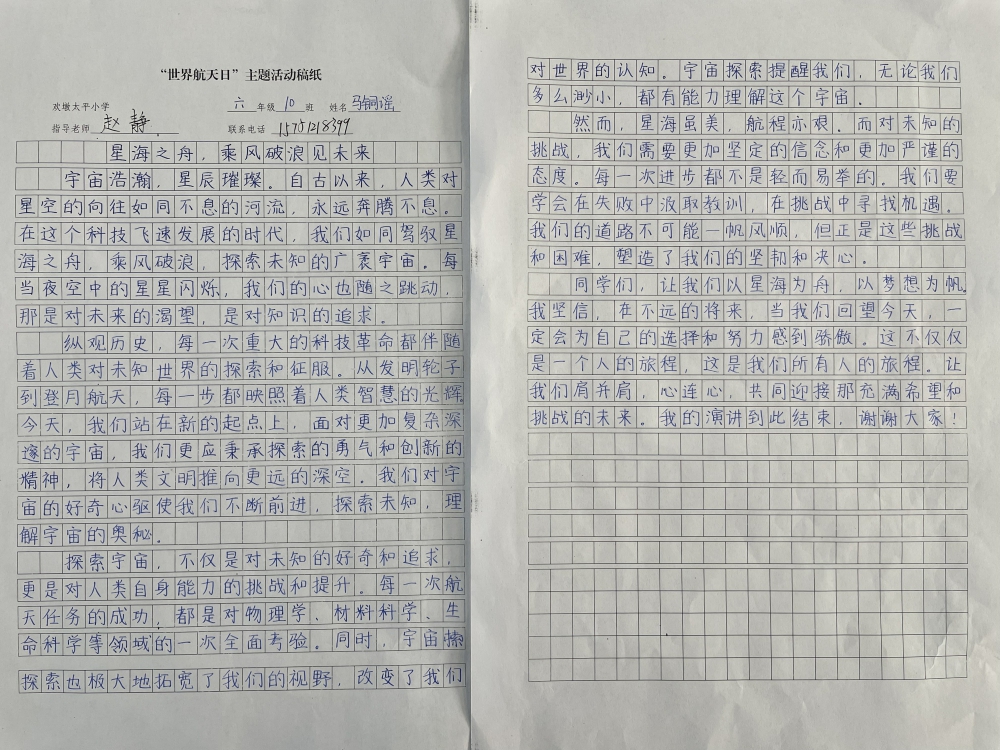 “世界航天日”主题活动稿纸
欢墩太平小学 六 年级 10 班 姓名 马铜谣
指导老师 赵静 联系电话 15751218399
星海之舟，乘风破浪见未来
宇宙浩瀚，星辰璀璨。自古以来，人类对
星空的向往如同不息的河流，永远奔腾不息。
在这个科技飞速发展的时代，我们如同驾驭星
海之舟，乘风破浪，探索未知的广袤宇宙。每
当夜空中的星星闪烁，我们的心也随之跳动，
那是对未来的渴望，是对知识的追求。
纵观历史，每一次重大的科技革命都伴随
着人类对未知世界的探索和征服。从发明轮子
到登月航天，每一步都映照着人类智慧的光辉。
今天，我们站在新的起点上，面对更加复杂深
邃的宇宙，我们更应秉承探索的勇气和创新的
精神，将人类文明推向更远的深空。我们对宇
宙的好奇心驱使我们不断前进，探索未知，理
解宇宙的奥秘。
探索宇宙，不仅是对未知的好奇和追求，
更是对人类自身能力的挑战和提升。每一次航
天任务的成功，都是对物理学、材料科学、生
命科学等领域的一次全面考验。同时，宇宙
探索也极大地拓宽了我们的视野，改变了我们
对世界的认知。宇宙探索提醒我们，无论我们
多么渺小，都有能力理解这个宇宙。
然而，星海虽美，航程亦艰。而对未知的
挑战，我们需要更加坚定的信念和更加严谨的
态度。每一次进步都不是轻而易举的。我们要
学会在失败中汲取教训，在挑战中寻找机遇。
我们的道路不可能一帆风顺，但正是这些挑战
和困难，塑造了我们的坚韧和决心。
同学们，让我们以星海为舟，以梦想为帆。
我坚信，在不远的将来，当我们回望今天，一
定会为自己的选择和努力感到骄傲。这不仅仅
是一个人的旅程，这是我们所有人的旅程。让
我们肩并肩，心连心，共同迎接那充满希望和
挑战的未来。我的演讲到此结束，谢谢大家！